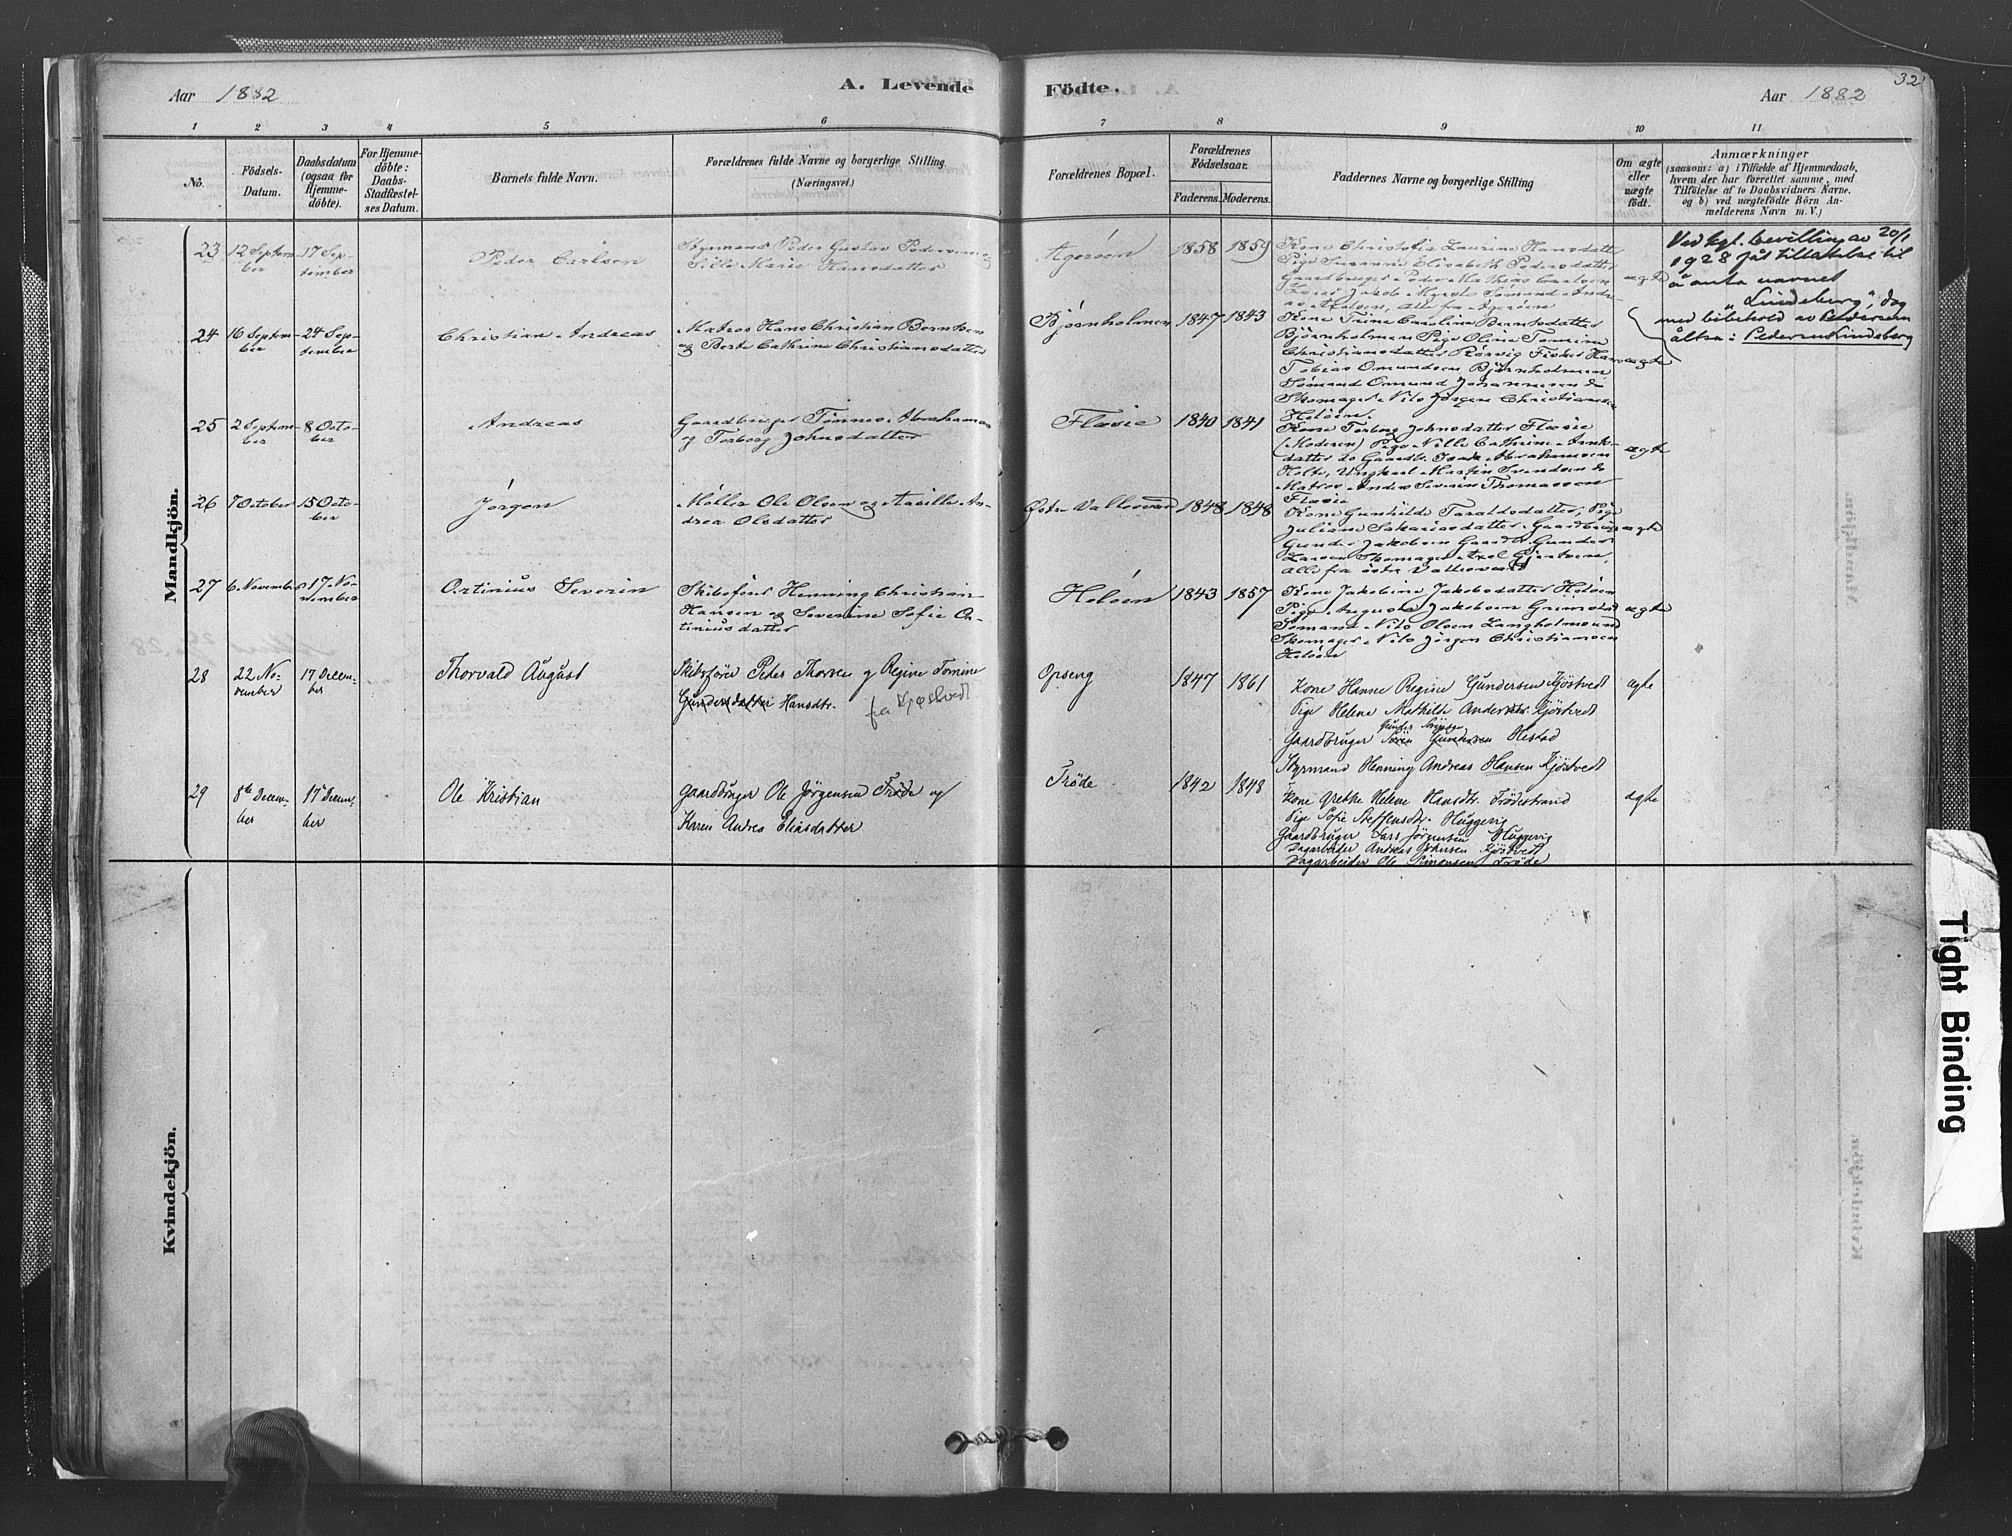 Aar 1882
A. Levende
Födte.
Aar 1882
32
1 2 3 4 5 6 7 8 9 10 11
No.
Födsels-
Datum.
Daabsdatum
(ogsaa for
Hjemme-
döbte).
For Hjemme-
döbte:
Daabs-
Stadfæstel-
ses Datum.
Barnets fulde Navn.
Forældrenes fulde Navne og borgerlige Stilling.
(Næringsvei.)
Forældrenes Bopæl.
Forældrenes
Födselsaar.
Faderens. Moderens.
Faddernes Navne og borgerlige Stilling
Om ægte
eller
uægte
födt.
Anmærkninger
(saasom: a) i Tilfælde af Hjemmedaab,
hvem der har forrettet samme, med
Tilföielse af to Daabsvidners Navne.
og b) ved uægtefödte Börn An-
melderens Navn m. V.)
Mandkjön.
23
12 Septem-
ber
17 Sep-
tember
Peder Carlsen
Styrmand Peder Gustav Pedersen og
Sille Marie Hansdatter
Agerøen
1858
1859
Kone Christofia Laurine Hansdatter
Pige Susanne Elisabeth Pedersdatter
Gaardbruger Peder Mathias Carlsen
Jakob Sømand Andre-
as alle fra Agerøen
ægte
Ved kgl. bevilling av 20/1
1928 fåt tillatelse til
å anta navnet
"Lindeberg", dog
med bibehold av Pedersen
altsa: Pedersen Lindeberg
24
16 Septem-
ber
24 Sep-
tember
Christian Andreas
Matros Hans Christian Berntsen
og Berte Cathrine Christiansdatter
Bjørnholmen
1847
1843
Kone Trine Caroline Berntsdatter
Bjørnholmen Pige Oline Tomine
Christiansdatter Rørvig Fisker Hans
Tobias Omundsen Bjørnholmen
Sømand Omund Johannesen do
Skomager Nils Jørgen Christiansen
Heløen.
ægte
25
2 Septem-
ber
8 Octo-
ber
Andreas
Gaardbruger Tønnes Abrahamsen
og Torborg Johnsdatter
Flæsie
1840
1841
Kone Torborg Johnsdatter Flæsie
(Moderen) Pige Nille Cathrine
datter do Gaardbr. Isak Abrahamsen
Holte, Ungkarl Martin Svendsen do
Matros Anders Severin Thomassen
Flæsie
ægte
26
7 October
15 Octo-
ber
Jørgen
Møller Ole Olsen og Aasille An-
drea Olsdatter
Østre Vallesværd
1848
1848
Kone Gunhilde Taraldsdatter, Pige
Juliane Sakariasdatter Gaardbruger
Gunder Jakobsen Gaardb. Gunder
Larsen Skomager Axel Gjertsen,
alle fra østre Vallesværd
ægte
27
6 November
17 No-
vember
Ortinius Severin
Skibsfører Henning Christian
Hansen og Severine Sofie Or-
tiniusdatter
Heløen
1843
1857
Kone Jakobine Jakobsdatter Heløen
Pige Auguste Jakobsen Grimstad
Sømand Nils Olsen Langholmsund
Skomager Nils Jørgen Christiansen
Heløen
ægte
28
22 No-
vember
17 Decem-
ber
Thorvald August
Skibsfører Peter Thorsen og Regine Tomine
Gundersdatter Hansdtr. fra Kjøstvedt
Opseng
1847
1861
Kone Hanne Regine Gundersen Kjöstvedt
Pige Helene Mathilde Andersdtr. Kjöstvedt
Gunder Sørensen
Gaardbruger Sören Gundersen Hestad
Styrmand Henning Andreas Hansen Kjöstvedt
ægte
29
8de Decem-
ber
17 Decem-
ber
Ole Kristian
Gaardbruger Ole Jörgensen Trøde og
Karen Andrea Eliasdatter
Trøde
1842
1848
Kone Grethe Helene Hansdtr. Trödestrand
Pige Sofie Steffensdtr. Huggevig
Gaardbruger Lars Jörgensen Huggevig
Dagarbeider Andreas Kjöstvedt
Dagarbeider Ole Simonsen Trøde
ægte
Kvindekjön.
Tight Binding